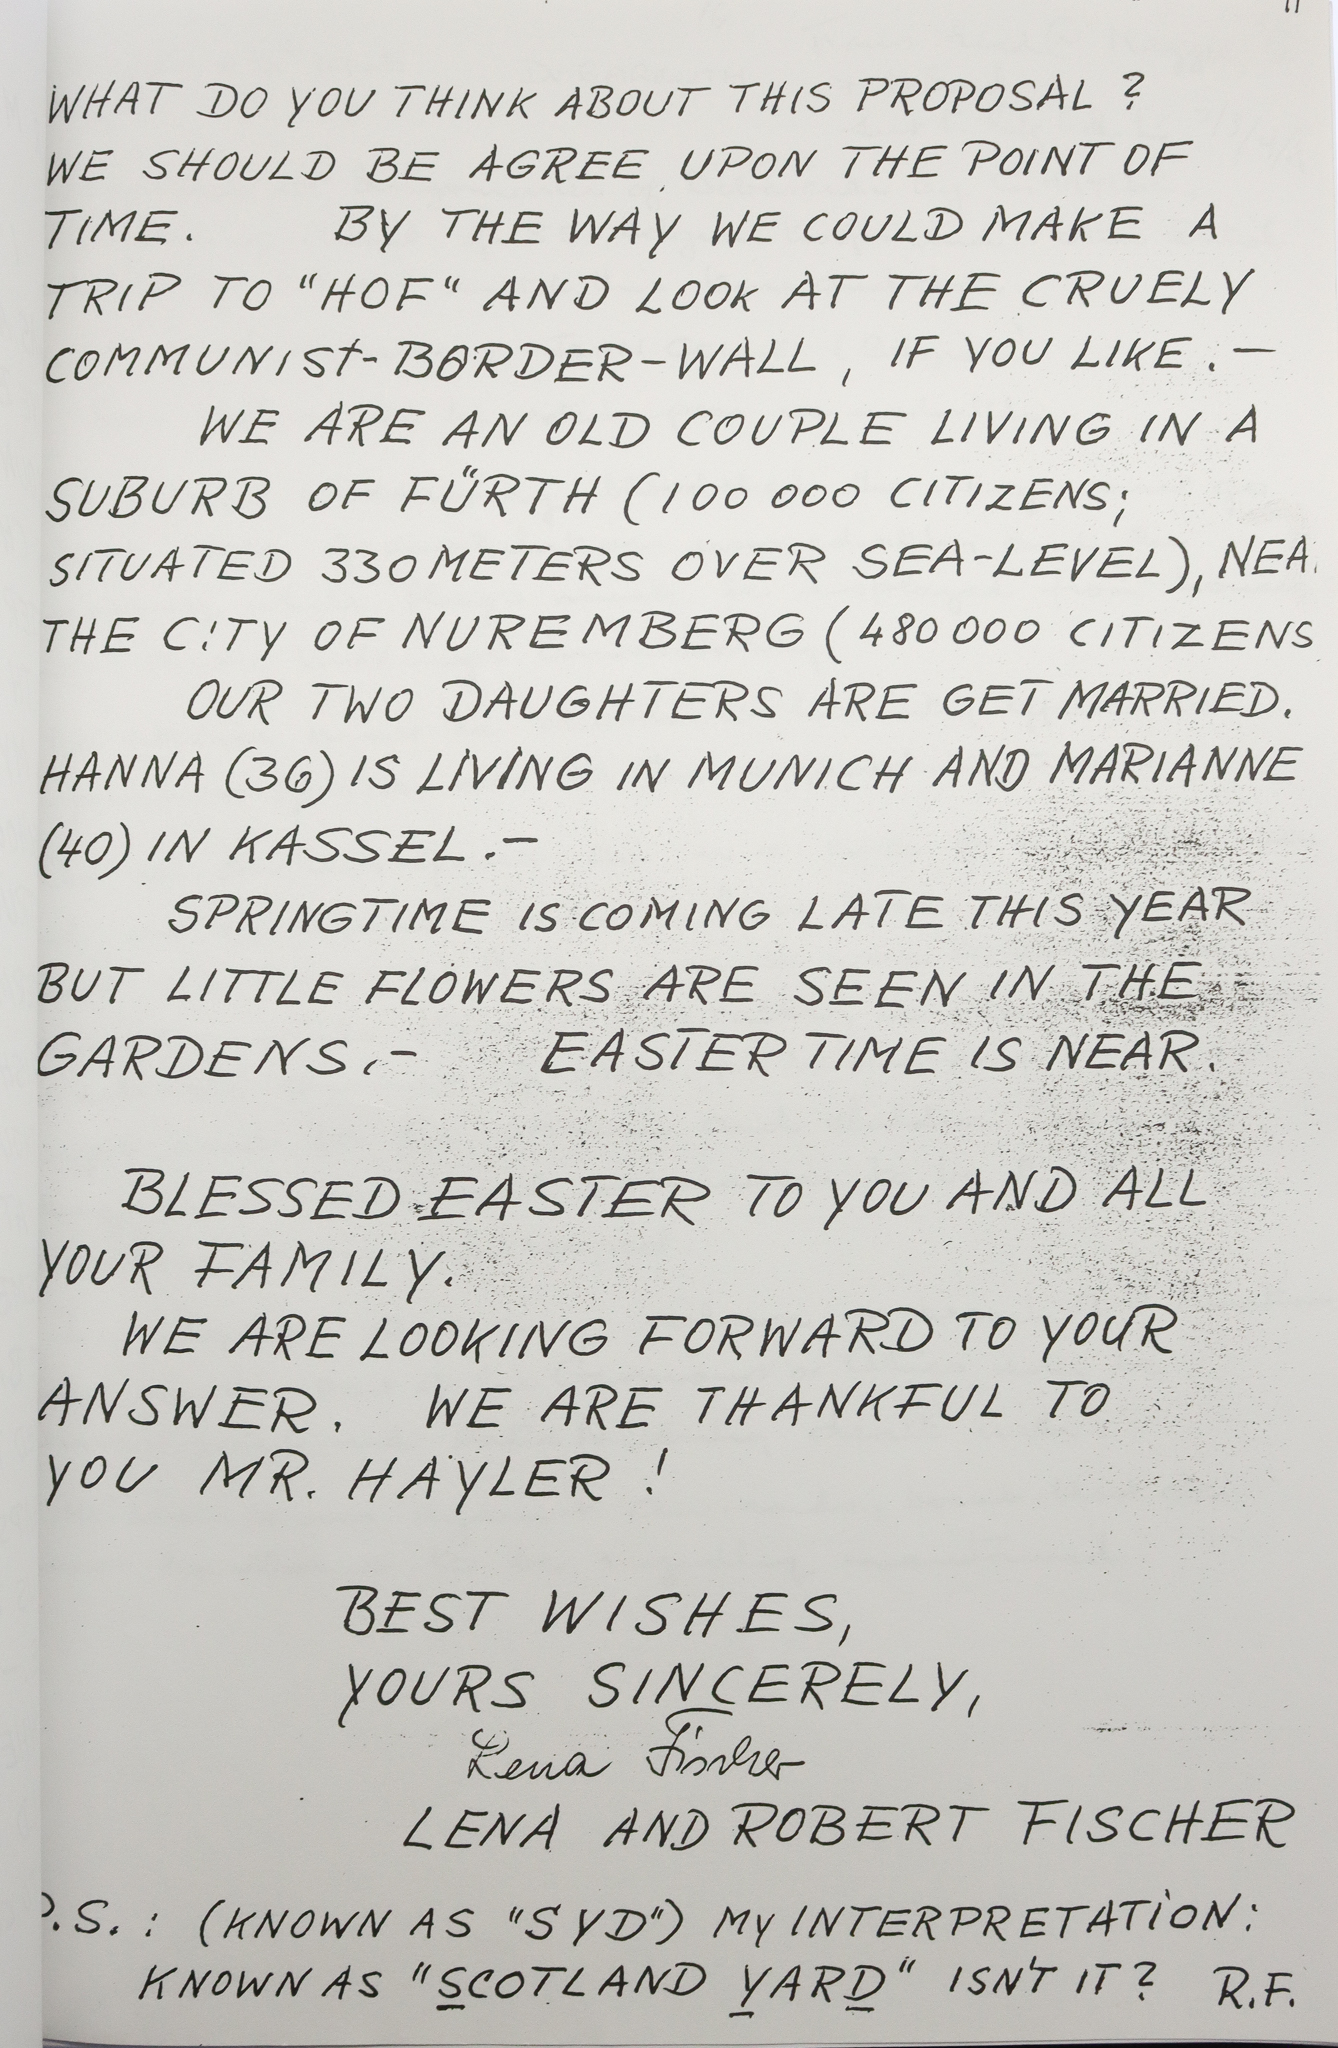 WHAT DO YOU THINK ABOUT THIS PROPOSAL ?
WE SHOULD BE AGREE UPON THE POINT OF
TIME. BY THE WAY WE COULD MAKE A
TRIP TO "HOF" AND LOOK AT THE CRUELY
COMMUNIST-BORDER-WALL, IF YOU LIKE.—
WE ARE AN OLD COUPLE LIVING IN A
SUBURB OF FÜRTH (100 000 CITIZENS;
SITUATED 330 METERS OVER SEA-LEVEL), NEA
THE CITY OF NUREMBERG (480 000 CITIZENS
OUR TWO DAUGHTERS ARE GET MARRIED.
HANNA (36) IS LIVING IN MUNICH AND MARIANNE
(40) IN KASSEL.—
SPRINGTIME IS COMING LATE THIS YEAR
BUT LITTLE FLOWERS ARE SEEN IN THE
GARDENS.— EASTER TIME IS NEAR.
BLESSED EASTER TO YOU AND ALL
YOUR FAMILY.
WE ARE LOOKING FORWARD TO YOUR
ANSWER. WE ARE THANKFUL TO
YOU MR. HAYLER !
BEST WISHES,
YOURS SINCERELY,
Lena Fischer
LENA AND ROBERT FISCHER
P.S.: (KNOWN AS "SYD") MY INTERPRETATION:
KNOWN AS "SCOTLAND YARD" ISN'T IT? R.F.